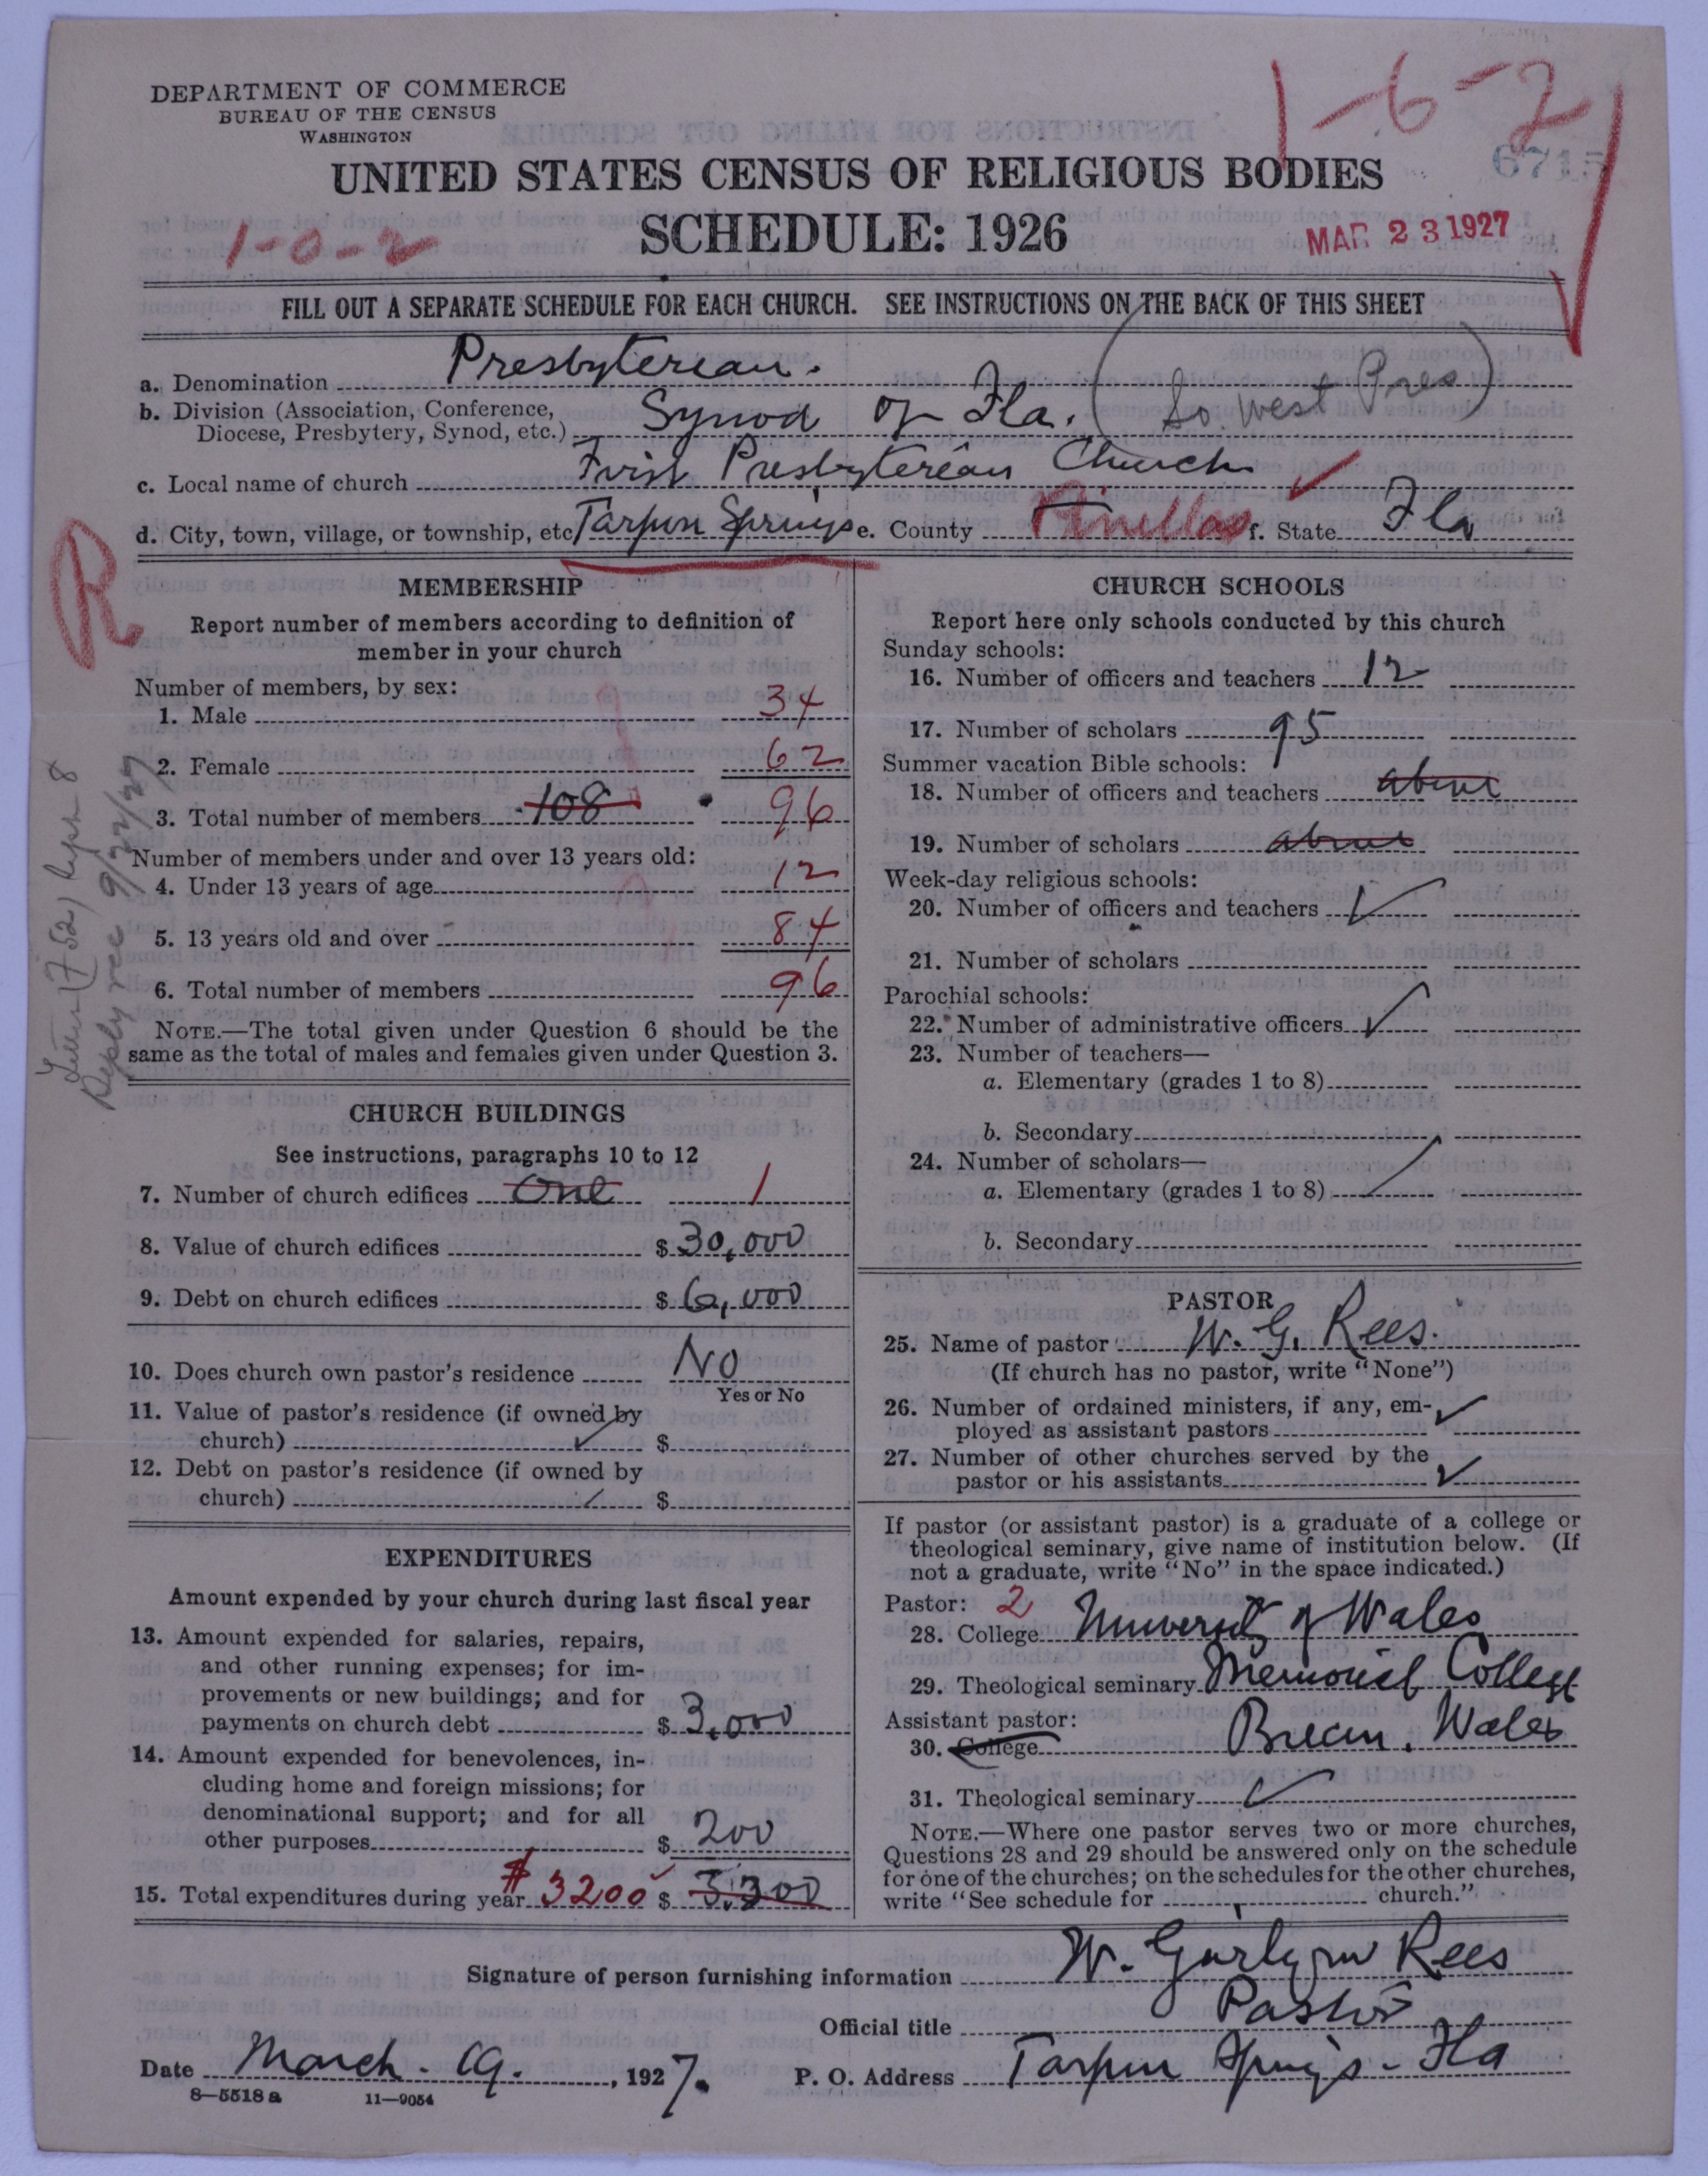 DEPARTMENT OF COMMERCE
BUREAU OF THE CENSUS
WASHINGTON
1-6-2
6715
UNITED STATES CENSUS OF RELIGIOUS BODIES
SCHEDULE: 1926
1-0-2
MAR 23 1927
FILL OUT A SEPARATE SCHEDULE FOR EACH CHURCH. SEE INSTRUCTIONS ON THE BACK OF THIS SHEET
a. Denomination Presbyterean.
b. Division (Association, Conference,
Diocese, Presbytery, Synod, etc.) Synod of Fla. (So. West Pres)
c. Local name of church First Presbyterean Church
d. City, town, village, or township, etc Tarpon Springs e. County Pinellas f. State Fla
R
MEMBERSHIP
Report number of members according to definition of
member in your church
Number of members, by sex:
1. Male 34
2. Female 62
3. Total number of members 108 96
Number of members under and over 13 years old:
4. Under 13 years of age 12
5. 13 years old and over 84
6. Total number of members 96
NOTE.—The total given under Question 6 should be the
same as the total of males and females given under Question 3.
Letter (752) Sept 8
Reply rec 9/22/27
CHURCH BUILDINGS
See instructions, paragraphs 10 to 12
7. Number of church edifices One 1
8. Value of church edifices $ 30,000
9. Debt on church edifices $ 6,000
10. Does church own pastor's residence No
Yes or No
11. Value of pastor's residence (if owned by
church) $
12. Debt on pastor's residence (if owned by
church) $
EXPENDITURES
Amount expended by your church during last fiscal year
13. Amount expended for salaries, repairs,
and other running expenses; for im-
provements or new buildings; and for
payments on church debt $ 3,000
14. Amount expended for benevolences, in-
cluding home and foreign missions; for
denominational support; and for all
other purposes $ 200
15. Total expenditures during year $3200 $ 3,300
CHURCH SCHOOLS
Report here only schools conducted by this church
Sunday schools:
16. Number of officers and teachers 12
17. Number of scholars 95
Summer vacation Bible schools:
18. Number of officers and teachers above
19. Number of scholars above
Week-day religious schools:
20. Number of officers and teachers
21. Number of scholars
Parochial schools:
22. Number of administrative officers
23. Number of teachers—
a. Elementary (grades 1 to 8)
b. Secondary
24. Number of scholars—
a. Elementary (grades 1 to 8)
b. Secondary
PASTOR
25. Name of pastor W. G. Rees.
(If church has no pastor, write "None")
26. Number of ordained ministers, if any, em-
ployed as assistant pastors
27. Number of other churches served by the
pastor or his assistants
If pastor (or assistant pastor) is a graduate of a college or
theological seminary, give name of institution below. (If
not a graduate, write "No" in the space indicated.)
Pastor: 2
28. College University of Wales
29. Theological seminary Memorial College
Assistant pastor:
30. College Brecon, Wales
31. Theological seminary
NOTE.—Where one pastor serves two or more churches,
Questions 28 and 29 should be answered only on the schedule
for one of the churches; on the schedules for the other churches,
write "See schedule for church."
Signature of person furnishing information W. Gurlynn Rees
Official title Pastor
Date March. 19. , 1927. P. O. Address Tarpon Springs - Fla
8—5518a 11—9054